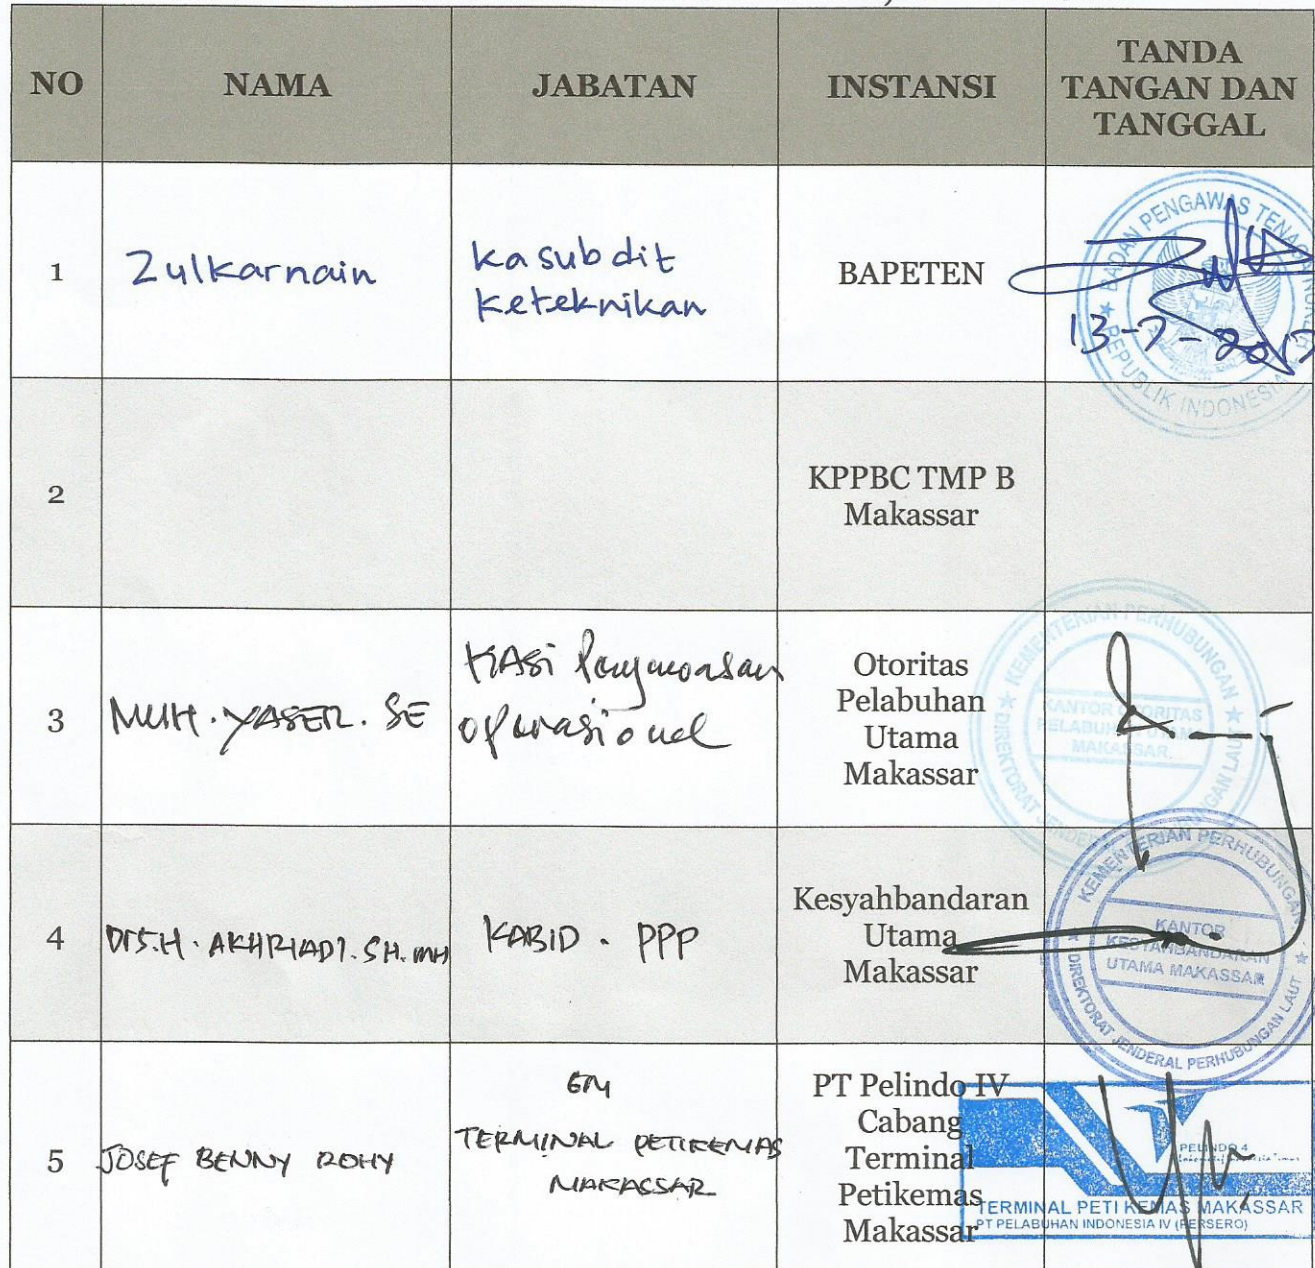 NO
NAMA
JABATAN
INSTANSI
TANDA
TANGAN DAN
TANGGAL
1
Zulkarnain
Kasubdit
Keteknikan
BAPETEN
BADAN PENGAWAS TENAGA
REPUBLIK INDONESIA
13-7-2017
2
KPPBC TMP B
Makassar
3
MUH. YASER. SE
KASi Pengawasan
operasional
Otoritas
Pelabuhan
Utama
Makassar
KEMENTERIAN PERHUBUNGAN
KANTOR OTORITAS
PELABUHAN UTAMA
MAKASSAR
DIREKTORAT JENDERAL PERHUBUNGAN LAUT
4
DRS.H. AKHRIADI. SH. MH
KABID. PPP
Kesyahbandaran
Utama
Makassar
KEMENTERIAN PERHUBUNGAN
KANTOR
KESYAHBANDARAN
UTAMA MAKASSAR
DIREKTORAT JENDERAL PERHUBUNGAN LAUT
5
JOSEF BENNY ROHY
GM
TERMINAL PETIKEMAS
MAKASSAR
PT Pelindo IV
Cabang
Terminal
Petikemas
Makassar
PELINDO 4
TERMINAL PETI KEMAS MAKASSAR
PT PELABUHAN INDONESIA IV (PERSERO)